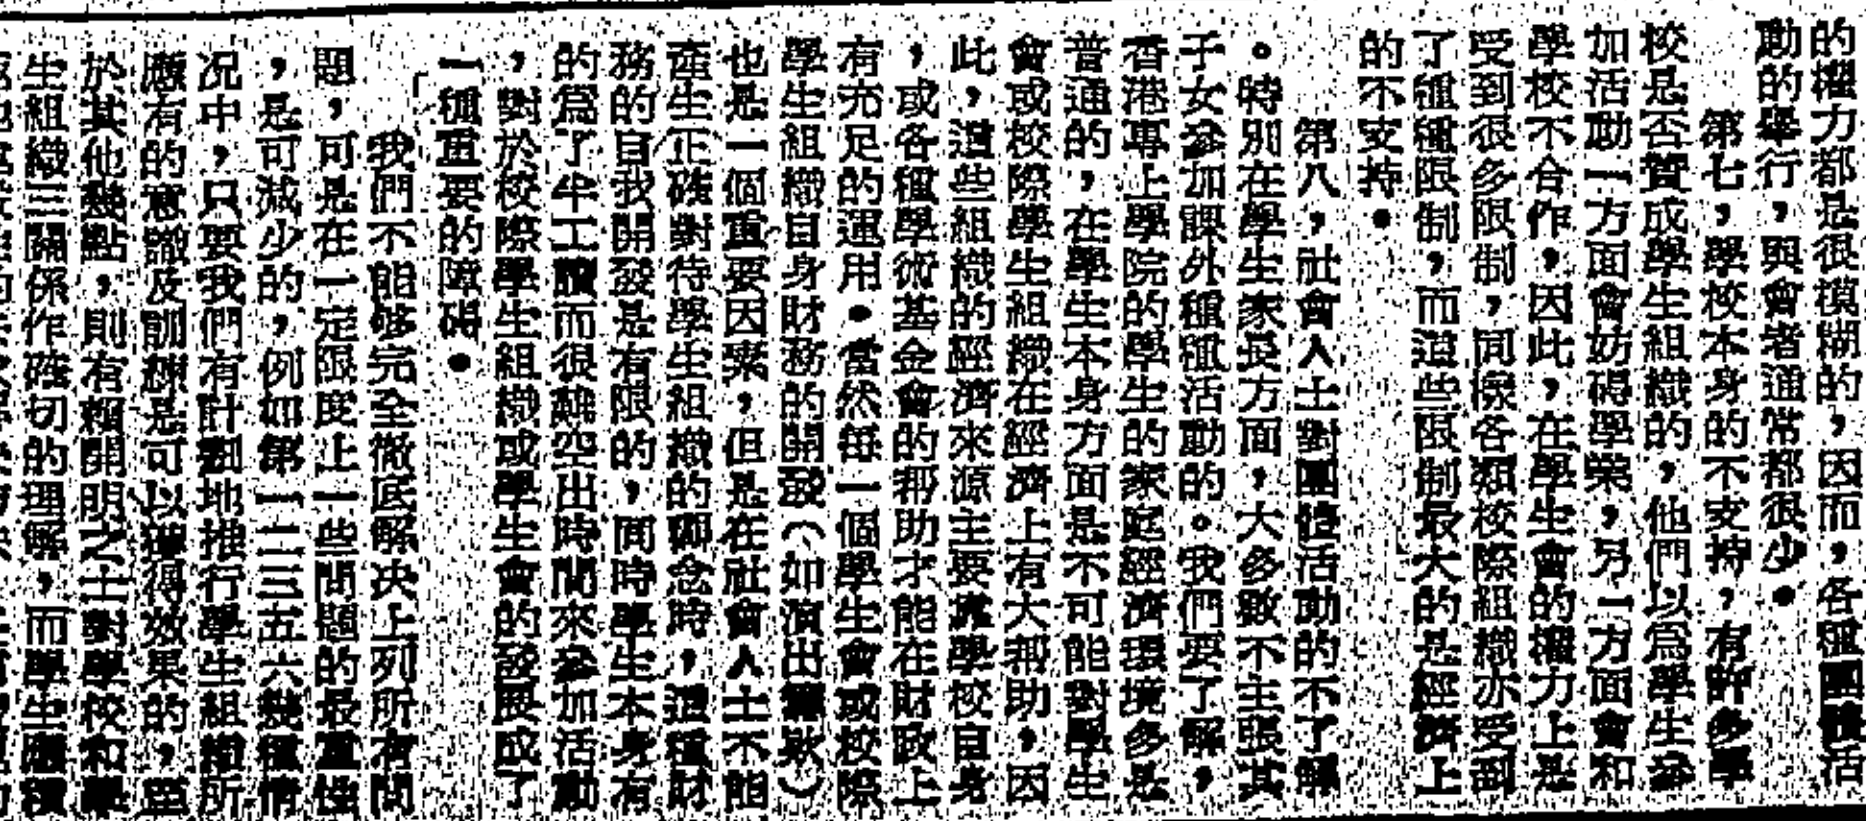 的權力都是很模糊的,因而,各種團體活
動的舉行,與會者通常都很少。
第七,學校本身的不支持,有許多學
校是否贊成學生組織的,他們以爲學生參
加活動一方面會妨碍學業,另一方面會和
學校不合作,因此,在學生會的權力上是
受到很多限制,同樣各類校際組織亦受到
了種種限制,而這些限制最大的是經濟上
的不支持。
第八,社會人士對團體活動的不了解
。特別在學生家長方面,大多數不主張其
子女參加課外種種活動的。我們要了解,
香港專上學院的學生的家庭經濟環境多是
普通的,在學生本身方面是不可能對學生
會或校際學生組織在經濟上有大帮助,因
此,這些組織的經濟來源主要靠學校自身
,或各種學術基金會的帮助才能在財政上
有充足的運用。當然每一個學生會或校際
學生組織自身財務的開發(如演出籌欵)
也是一個重要因素,但是在社會人士不能
產生正確對待學生組織的觀念時,這種財
務的自我開發是有限的,同時學生本身有
的爲了半工讀而很難空出時間來參加活動
,對於校際學生組織或學生會的發展成了
一種重要的障碍。
我們不能够完全徹底解决上列所有問
題,可是在一定限度上一些問題的最重性
,是可减少的,例如第一二三五六幾種情
况中,只要我們有計劃地推行學生組織所
應有的意識及訓練是可以獲得效果的,至
於其他幾點,則有賴開明之士對學校和學
生組織三關係作確切的理解,而學生團積